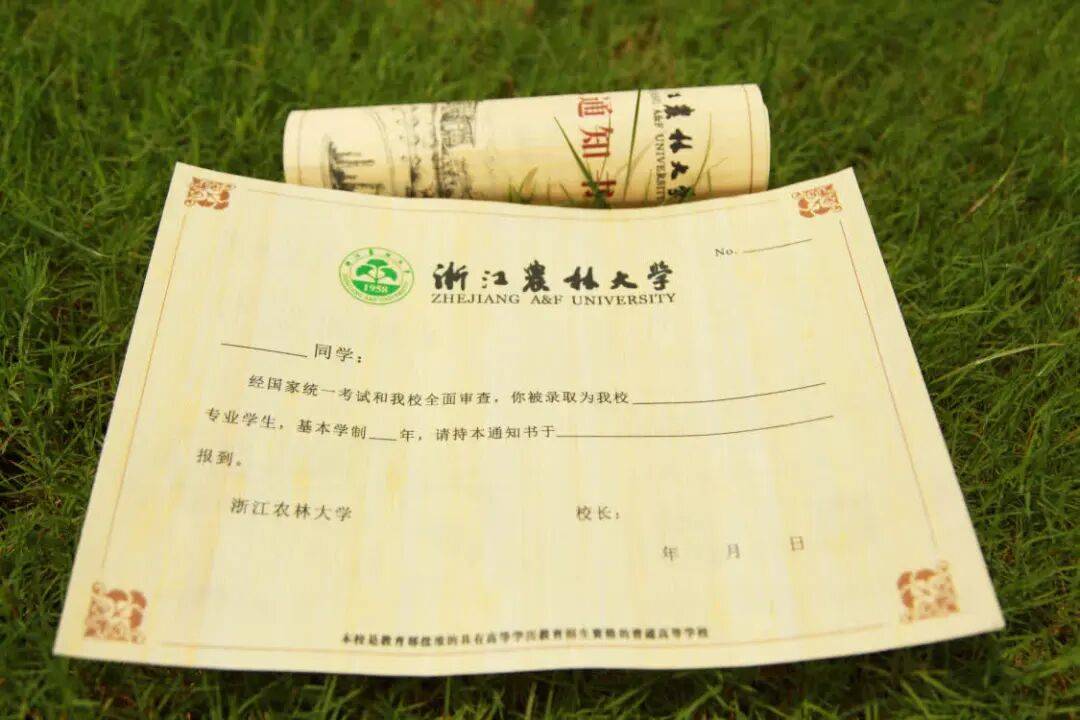 通知书
农林大学
A&F UNIVERSITY
No.
1958
浙江农林大学
ZHEJIANG A&F UNIVERSITY
同学：
经国家统一考试和我校全面审查，你被录取为我校
专业学生，基本学制 年，请持本通知书于
报到。
浙江农林大学 校长：
年 月 日
本校是教育部批准的具有高等学历教育招生资格的普通高等学校